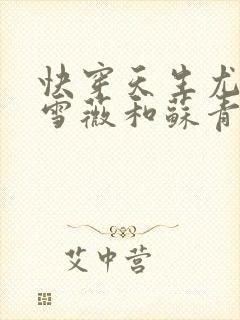 快穿天生尤
雪薇和蘇青
艾中营